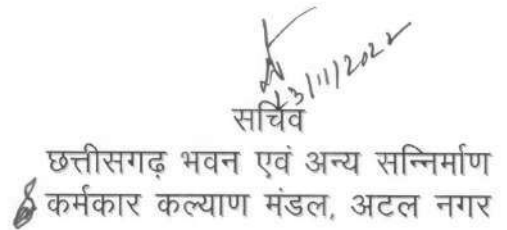 23/11/2022
सचिव
छत्तीसगढ़ भवन एवं अन्य सन्निर्माण
कर्मकार कल्याण मंडल, अटल नगर